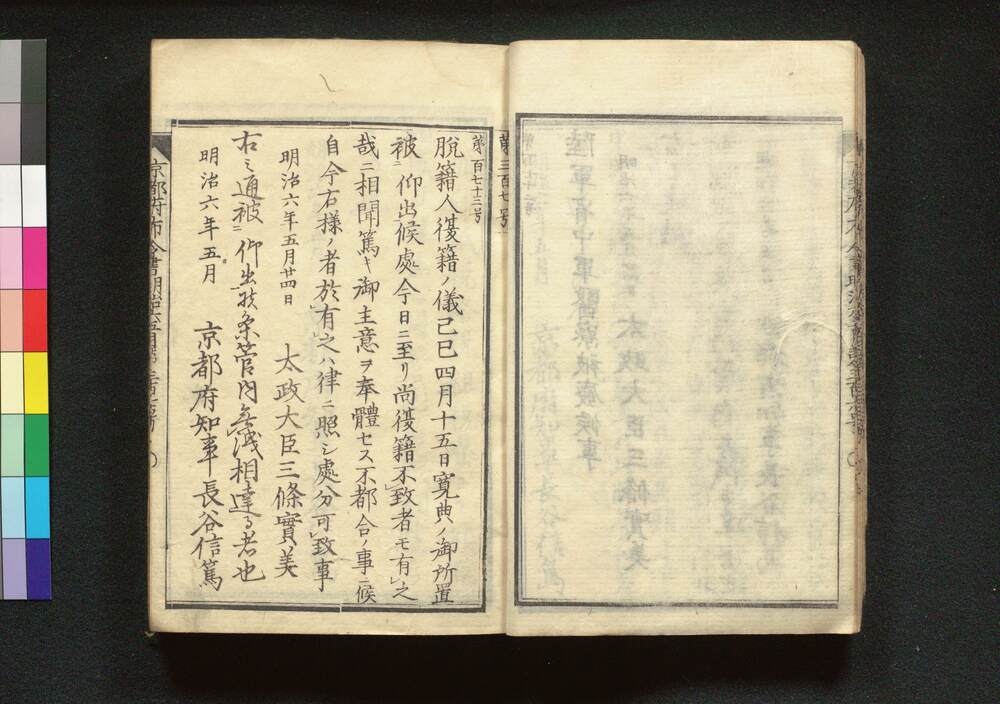 第三百七号
第百七十三号
脱籍人復籍ノ儀己巳四月十五日寛典ノ御所置
被ニ仰出候處今日ニ至リ尚復籍不致者モ有之
哉ニ相聞篤キ御主意ヲ奉體セス不都合ノ事ニ候
自今右様ノ者於有之ハ律ニ照シ處分可致事
明治六年五月廿四日 太政大臣三條實美
右之通被ニ仰出候条管内無洩相達る者也
明治六年五月 京都府知事長谷信篤
京都府布令書明治六年五月第三百七号